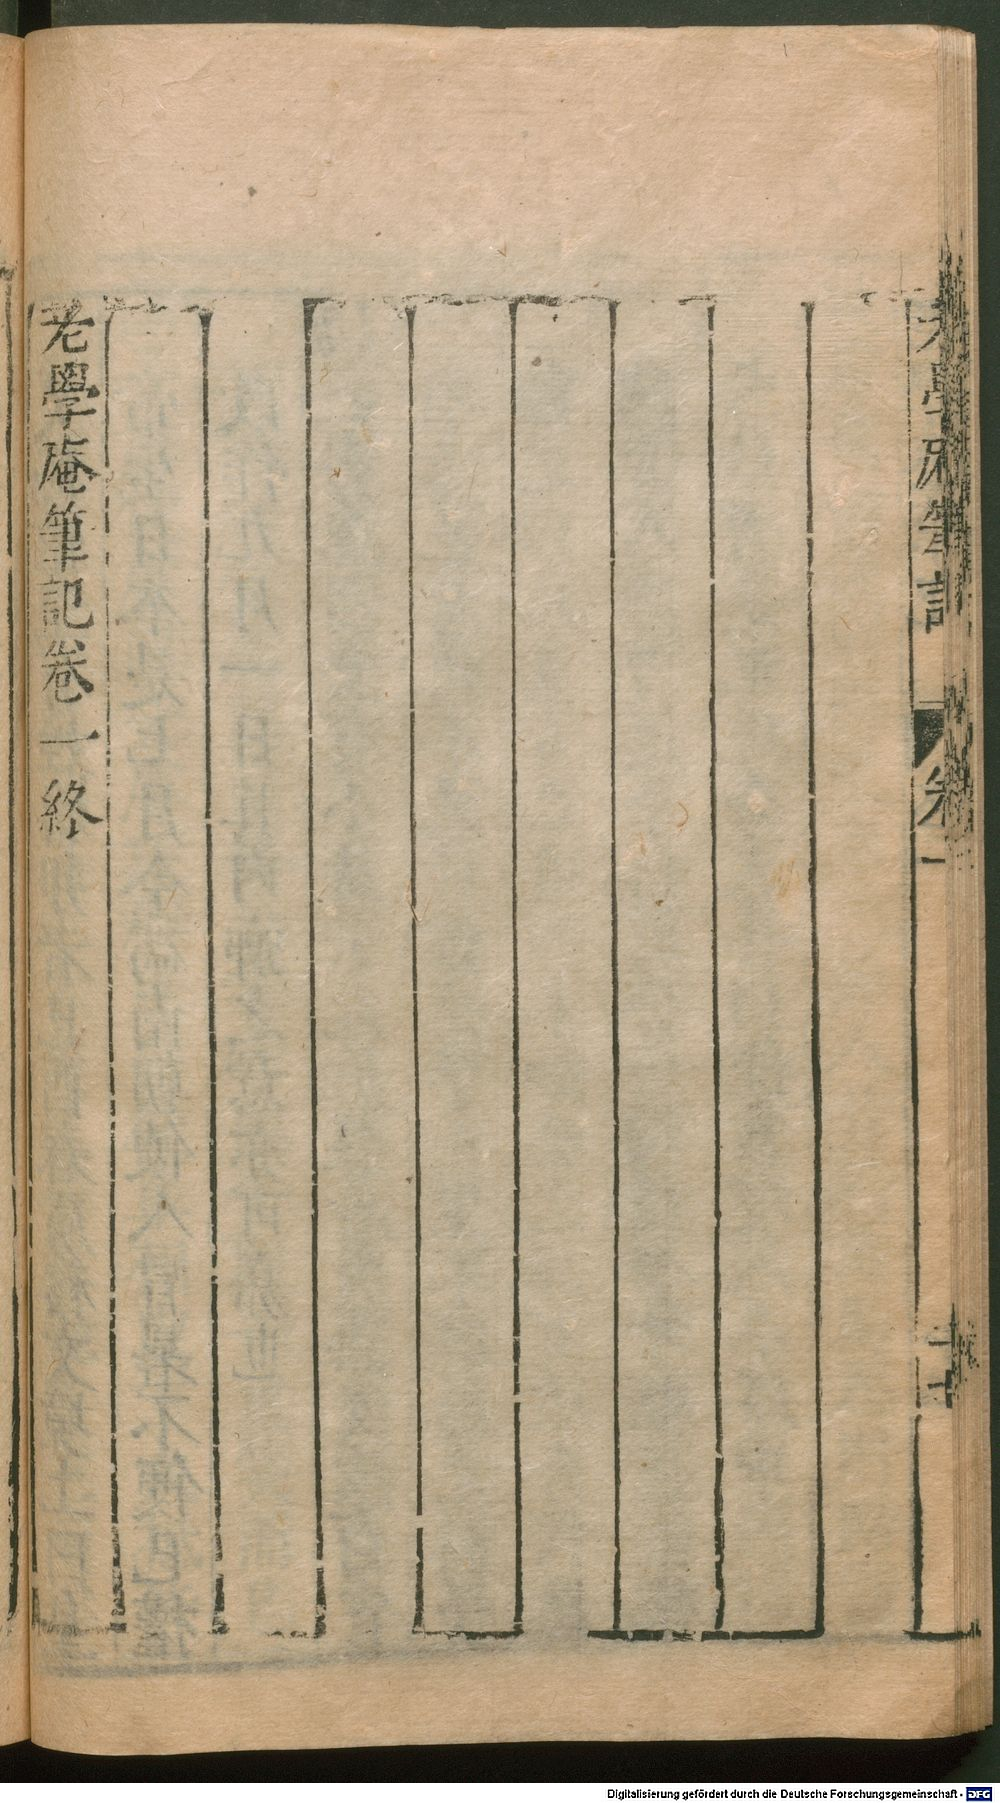 老學庵筆記
卷一
老學庵筆記卷一終
Digitalisierung gefördert durch die Deutsche Forschungsgemeinschaft - DFG